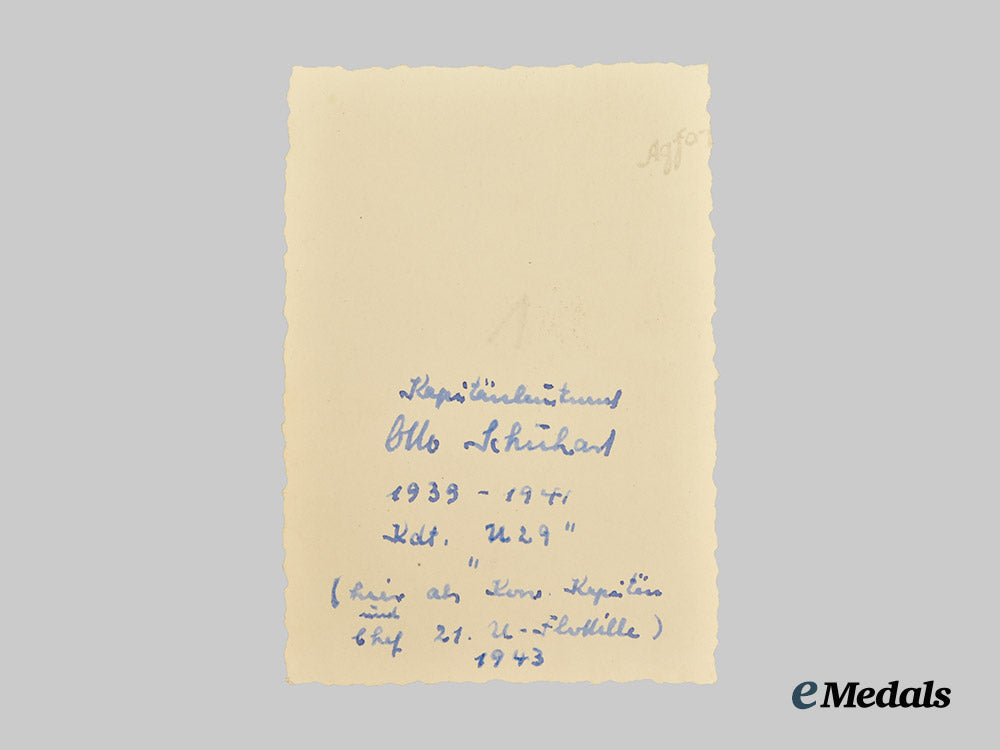 Agfa
Kapitänleutnant
Otto Schuhart
1939 - 1941
Kdt. "U29"
(hier als Korv. Kapitän
und
Chef 21. U-Flottille)
1943
eMedals